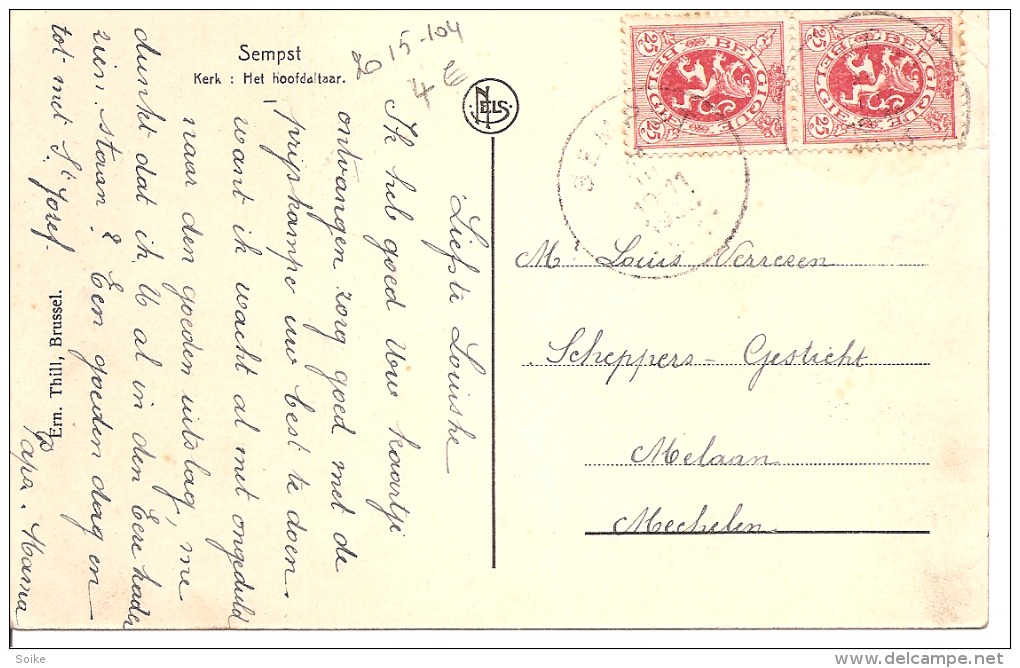 Sempst
Kerk : Het hoofdaltaar.
15-104
4 €
NELS
BELGIQUE BELGIË
25 25
BELGIQUE BELGIË
25 25
SEM
10-11
Liefste Louiske
Ik heb goed uw kaartje
ontvangen zorg goed met de
prijskampe uw best te doen.
want ik wacht al met ongeduld
naar den goeden uitslag, me
dunkt dat ik U al in den Eere kader
zien staan? Een goeden dag en
tot met St Josef.
Papa. Mama
Ern. Thill, Brussel.
Mr Louis Verresen
Scheppers - Gesticht
Melaan
Mechelen.
Soike
delcampe.net